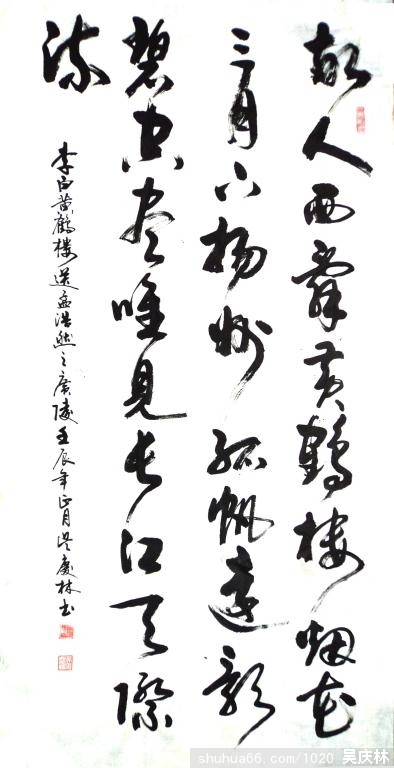 故人西辞黄鶴楼烟花
三月下揚州孤帆遠影
碧空尽唯見长江天際
流
李白黄鶴楼送孟浩然之廣陵壬辰年正月吴慶林书
shuhua66.com/1020 吴庆林